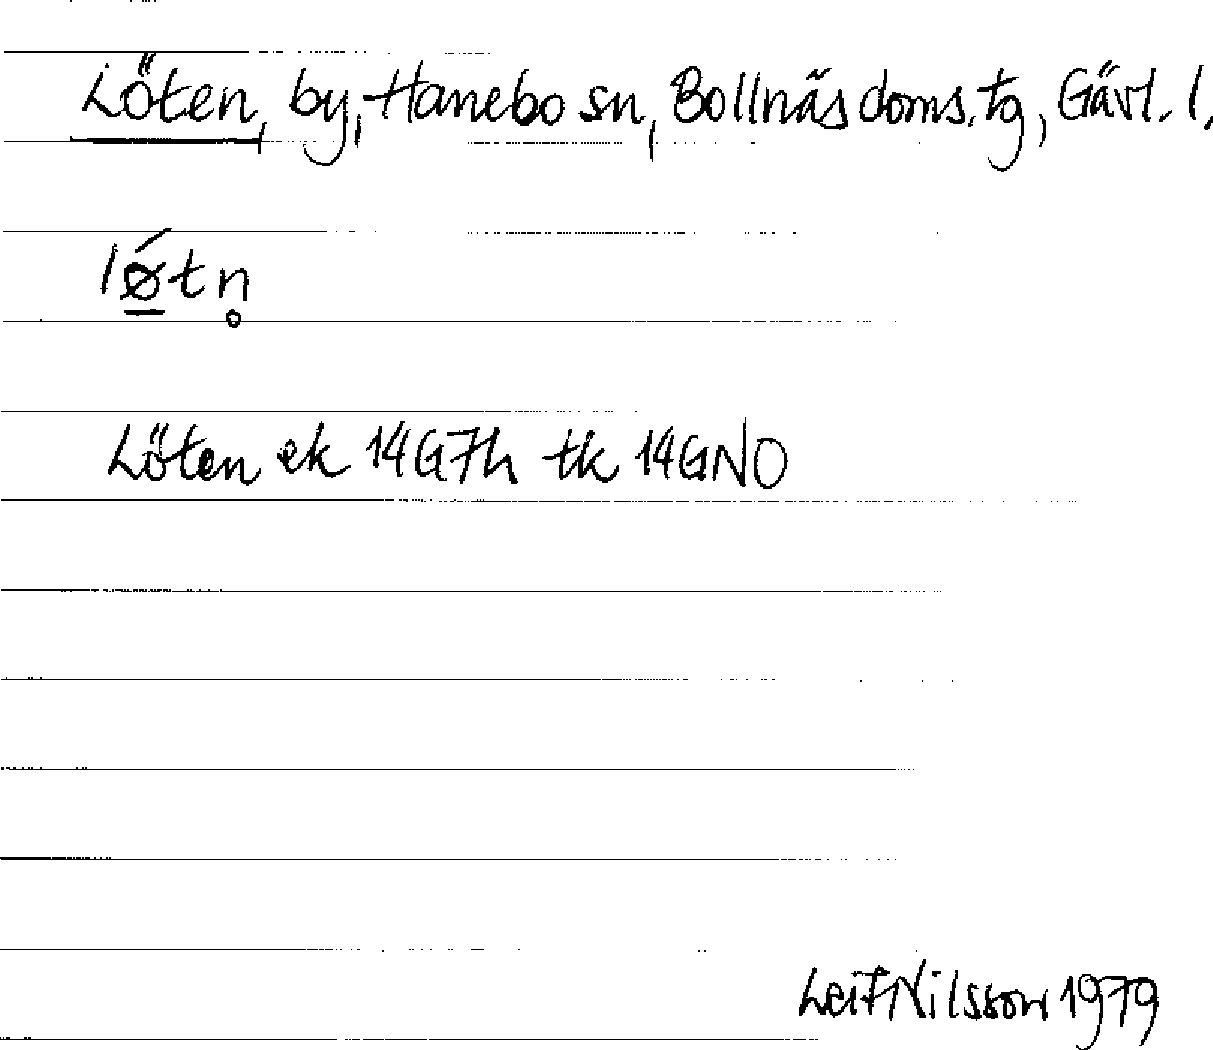 Löten, by, Hanebo sn, Bollnäs doms.tg, Gävl. l.
lǿ̱tn̥
Löten ek 14G7h tk 14GNO
Leif Nilsson 1979